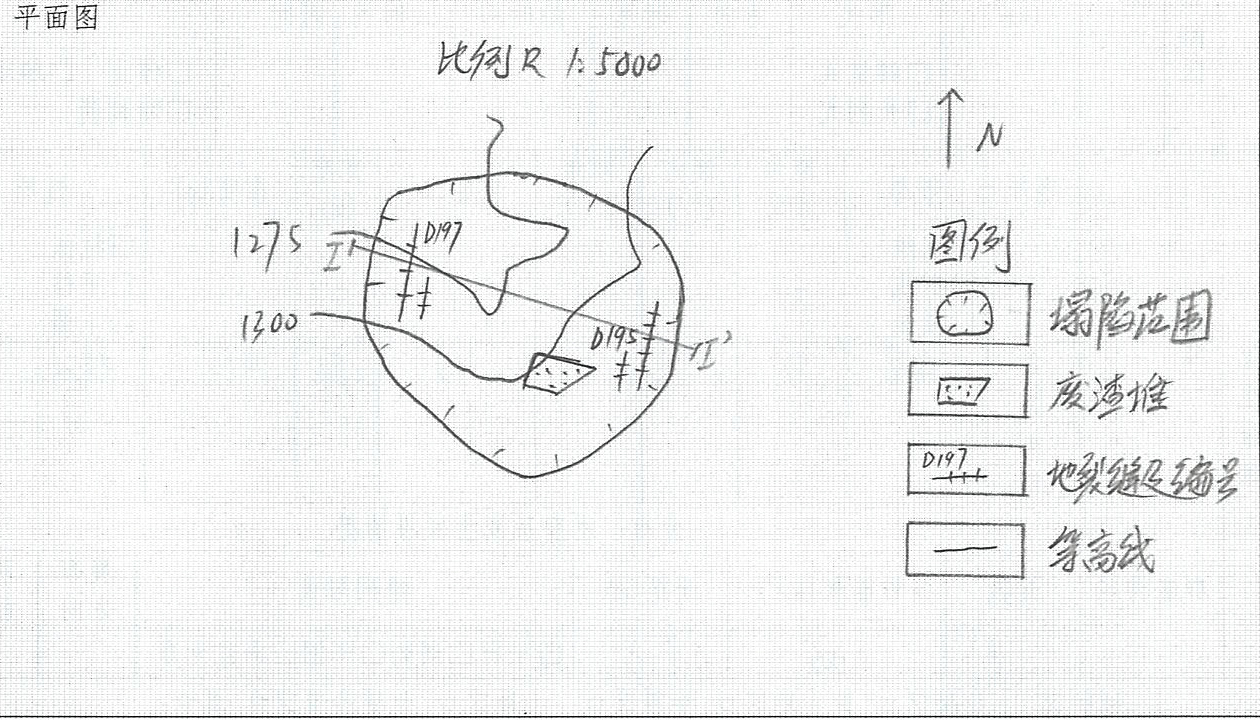 平面图
比例尺 1:5000
N
1275
I
D197
1300
D195
I'
图例
塌陷范围
废渣堆
D197
地裂缝及编号
等高线